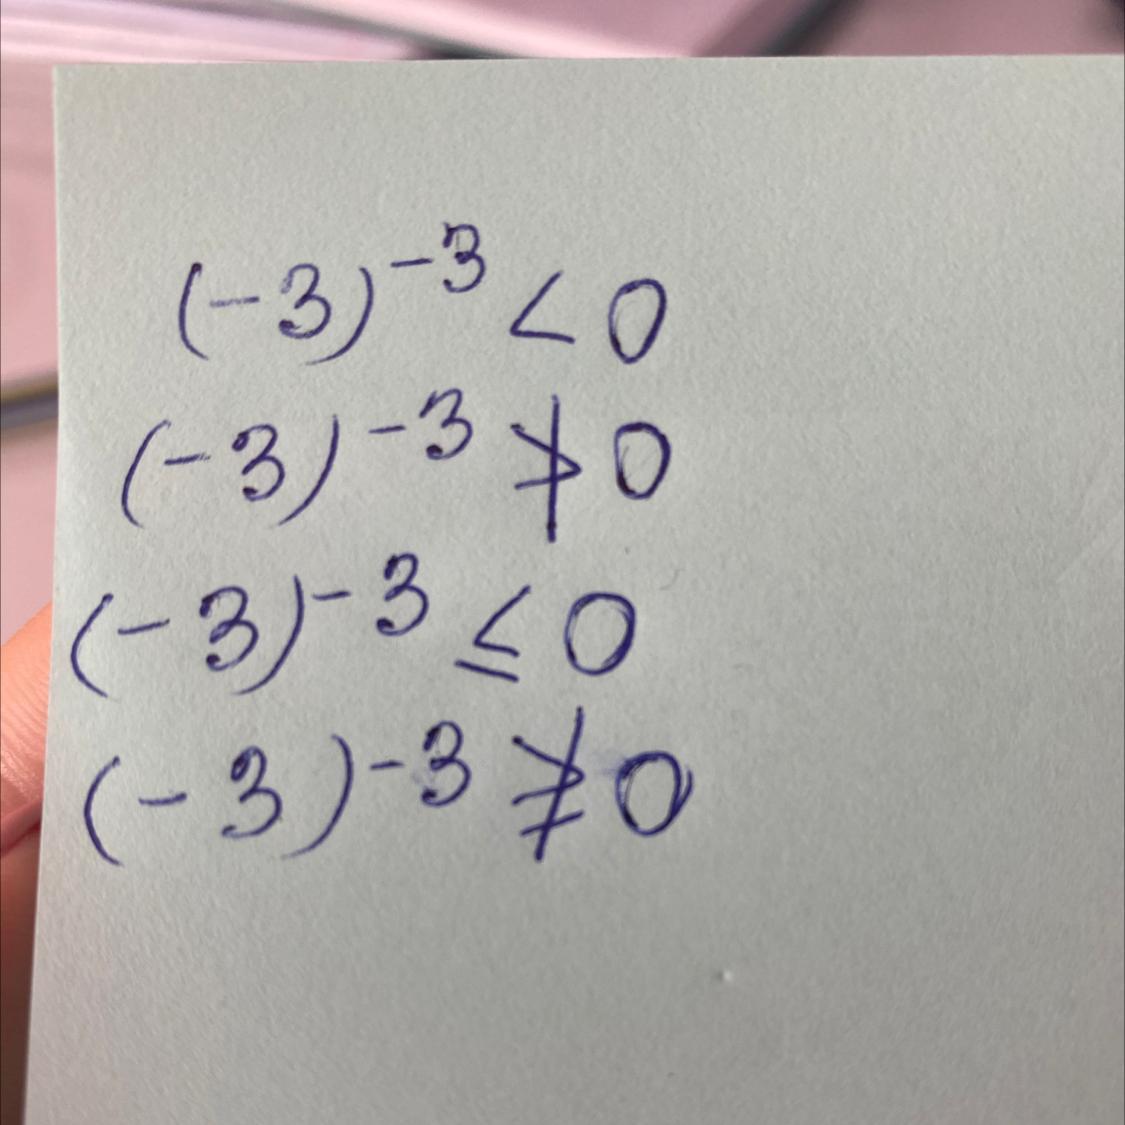 (-3)⁻³ < 0
(-3)⁻³ ≯ 0
(-3)⁻³ ≤ 0
(-3)⁻³ ≱ 0